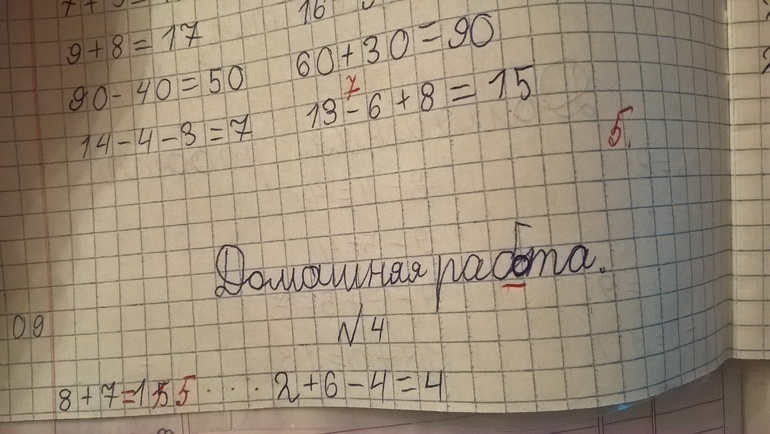 16
9+8=17
60+30=90
90-40=50
7
13-6+8=15
14-4-3=7
5.
Домашняя работа.
09
№4
8+7=155 .... 2+6-4=4